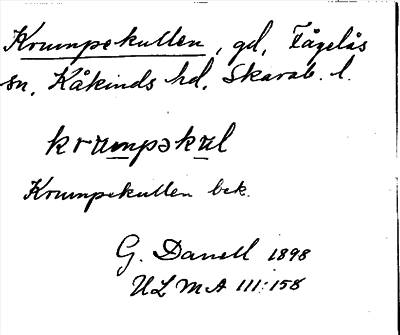 Krumpekullen, gd, Fågelås
sn, Kåkinds hd, Skarab. l.
krumpəkul
Krumpekullen bek.
G. Danell 1898
ULMA 111:158